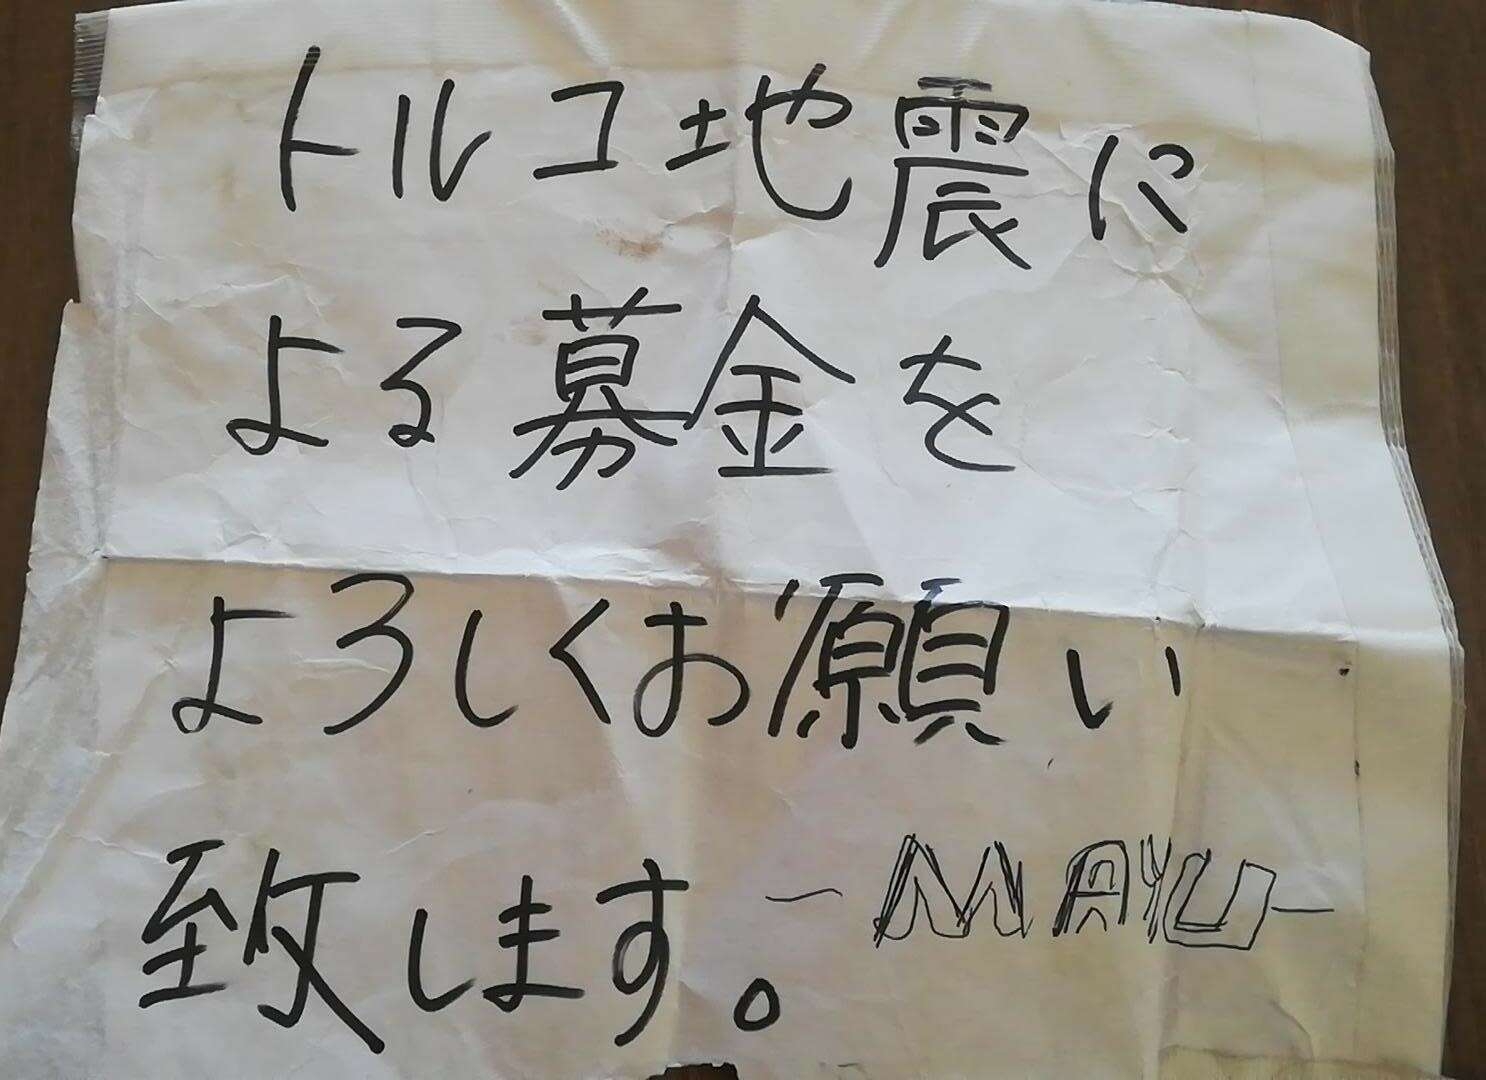 トルコ地震に
よる募金を
よろしくお願い
致します。 -MAYU-